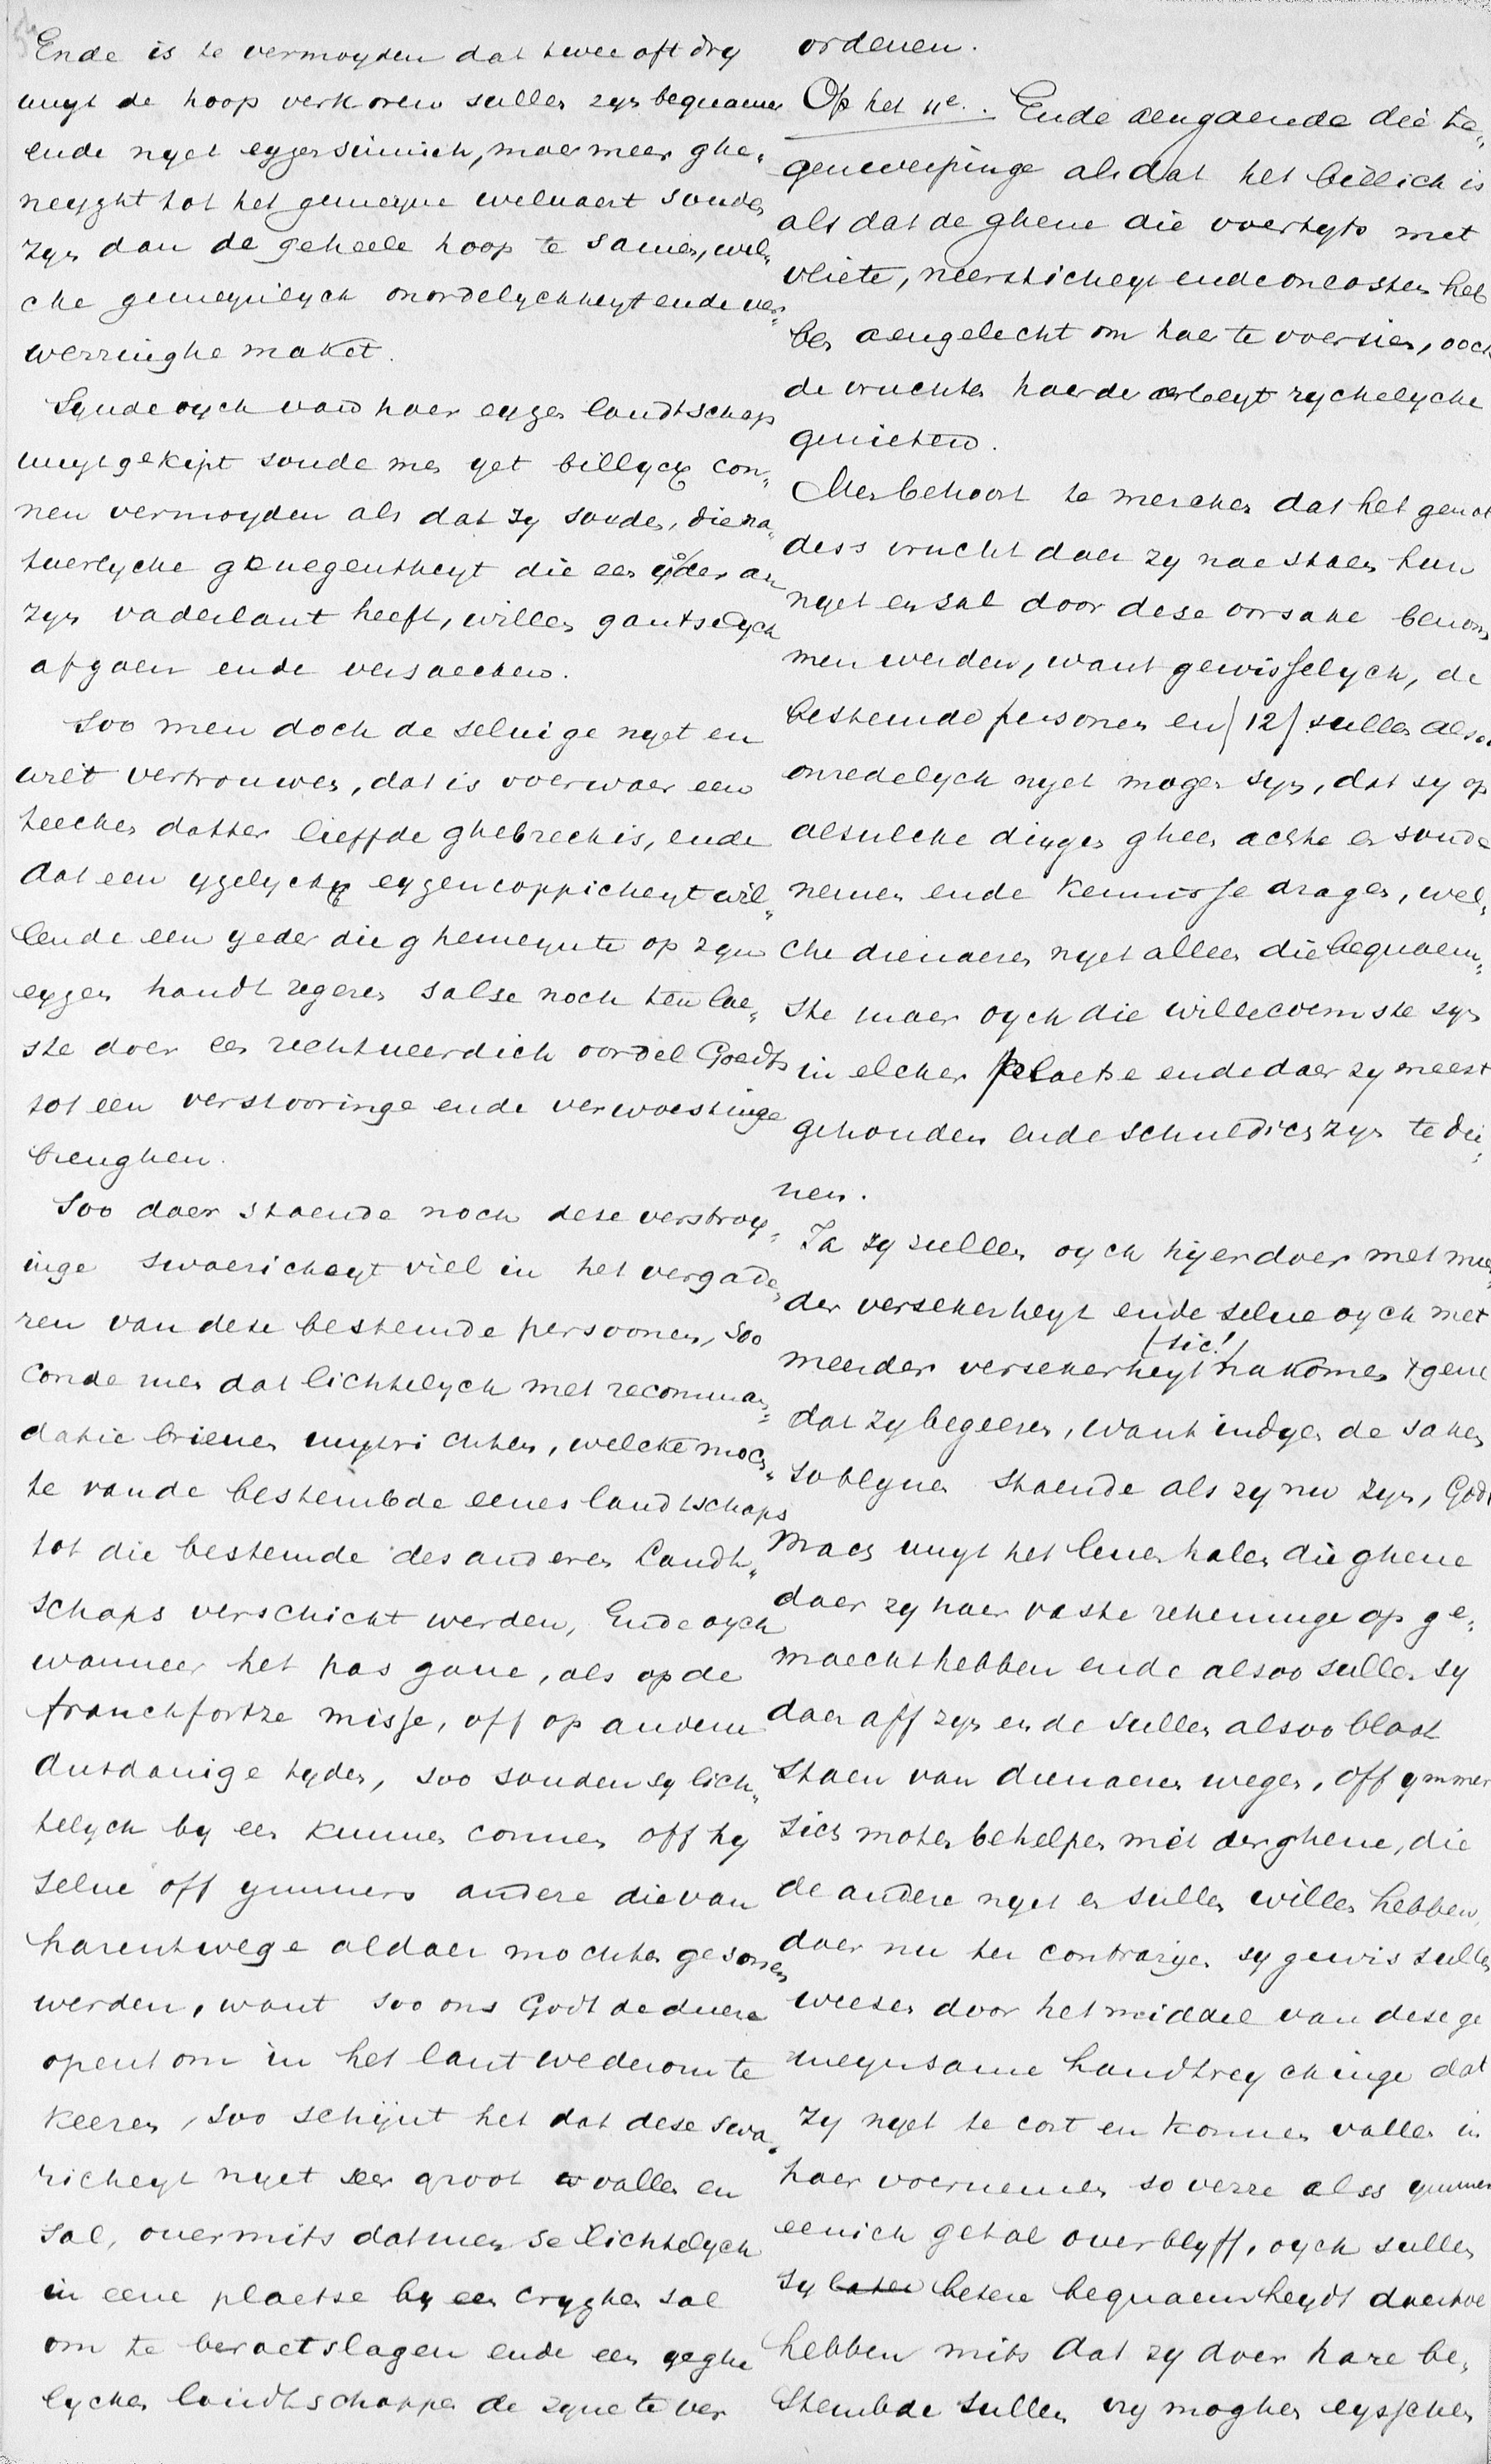 Ende is te vermoyden dat twee oft dry
uuyt de hoop verkoren sullen zyn bequamer
ende nyet eygensinnich, maer meer ghe„
neyght tot het gemeyne weluaert souden
zyn dan de geheele hoop te samen, wel„
che gemeynlych onordelychheyt ende ver„
werringhe maket.
Synde oych van haer eygen landtschap
uuytgekipt soude men yet billycx con„
nen vermoyden als dat zy souden, die na„
tuerlyche genegentheyt die een yder an
zyn vaderlant heeft, willen gantselych
afgaen ende versaecken.
Soo men doch de seluige nyet en
wilt vertrouwen, dat is voerwaer een
teecken datter lieffde ghebrech is, ende
dat een ygelychx eygencoppicheyt wil„
lende een yeder die ghemeynte op zyn
eygen handt regeren salse noch ten lae„
ste doer een rechtueerdich oordel Goedts
tot een verstooringe ende verwoestinge
brenghen.
Soo daer staende noch dese verstroy„
inge swaericheyt viel in het vergade„
ren van dese bestemde persoonen, soo
conde men dat lichtelych met recomman„
datie brieuen uuytrichten, welcke moch„
te vande bestembde eenes landtschaps
tot die bestemde des anderen Landt„
schaps verschickt werden, Ende oych
wanneer het pas gaue, als op de
franchfortze misse, off op andern
dusdanige tyden, soo souden sy lich„
telych by een kunnen connen off hy
selue off ymmers andere die van
harentwege aldaer mochten gesonnen
werden, want soo ons Godt de duere
opent om in het lant wederom te
keeren, soo schijnt het dat dese swa„
richeyt nyet seer groot vallen en
sal, ouermits datmen se lichtelych
in eene plaetse by een cryghen sal
om te beraetslagen ende een yeghe
lycken landtschappe de zyne te ver
ordenen.
Op het 11e. Ende aengaende die te„
genwerpinge als dat het billich is
als dat de ghene die voertyts met
vliete, neersticheyt ende oncosten heb
ben aengelecht om haer te voersien, ooch
de vruchten haerde arbeyt rychelyche
genieten.
Men behoort te mercken dat het genot
dess vrucht daer zy nae staen hun
nyet en sal door dese oorsake benom
men werden, want gewisselych, de
bestemde personen en (12) sullen alsoo
onredelych nyet mogen syn, dat sy op
alsulche dingen gheen achte en soude
nemen ende kennisse dragen, wel„
che dienaren nyet alleen die bequaem„
ste maer oych die willecoemste syn
in elcker plaetse ende daer zy meest
gehouden ende schuldich zyn te die„
nen.
Ja zy sullen oych hyerdoer met meer„
der versekerheyt ende selue oych met
meerder versekerheyt (sic!) nakomen tgene
dat zy begeeren, want indyen de saken
so blyuen staende als zy nu zyn, Godt
Mach uuyt het leuen halen die ghene
daer zy haer vaste rekeninge op ge„
maecht hebben ende alsoo sullen sy
daer aff zyn ende sullen alsoo bloot
staen van dienaeren wegen, off ymmer
sich moten behelpen mit der ghene, die
de andere nyet en sullen willen hebben,
daer nu ter contrarijen sy gewis sullen
weesen door het middel van dese ge
meynsame handtreychinge dat
zy nyet te cort en konnen vallen in
haer voernemen so verre alss ymmer
eenich getal ouerblyff, oych sullen
sy betere bequaemheydt daertoe
hebben mits dat zy doer hare be„
stembde sullen vry moghen eysschen